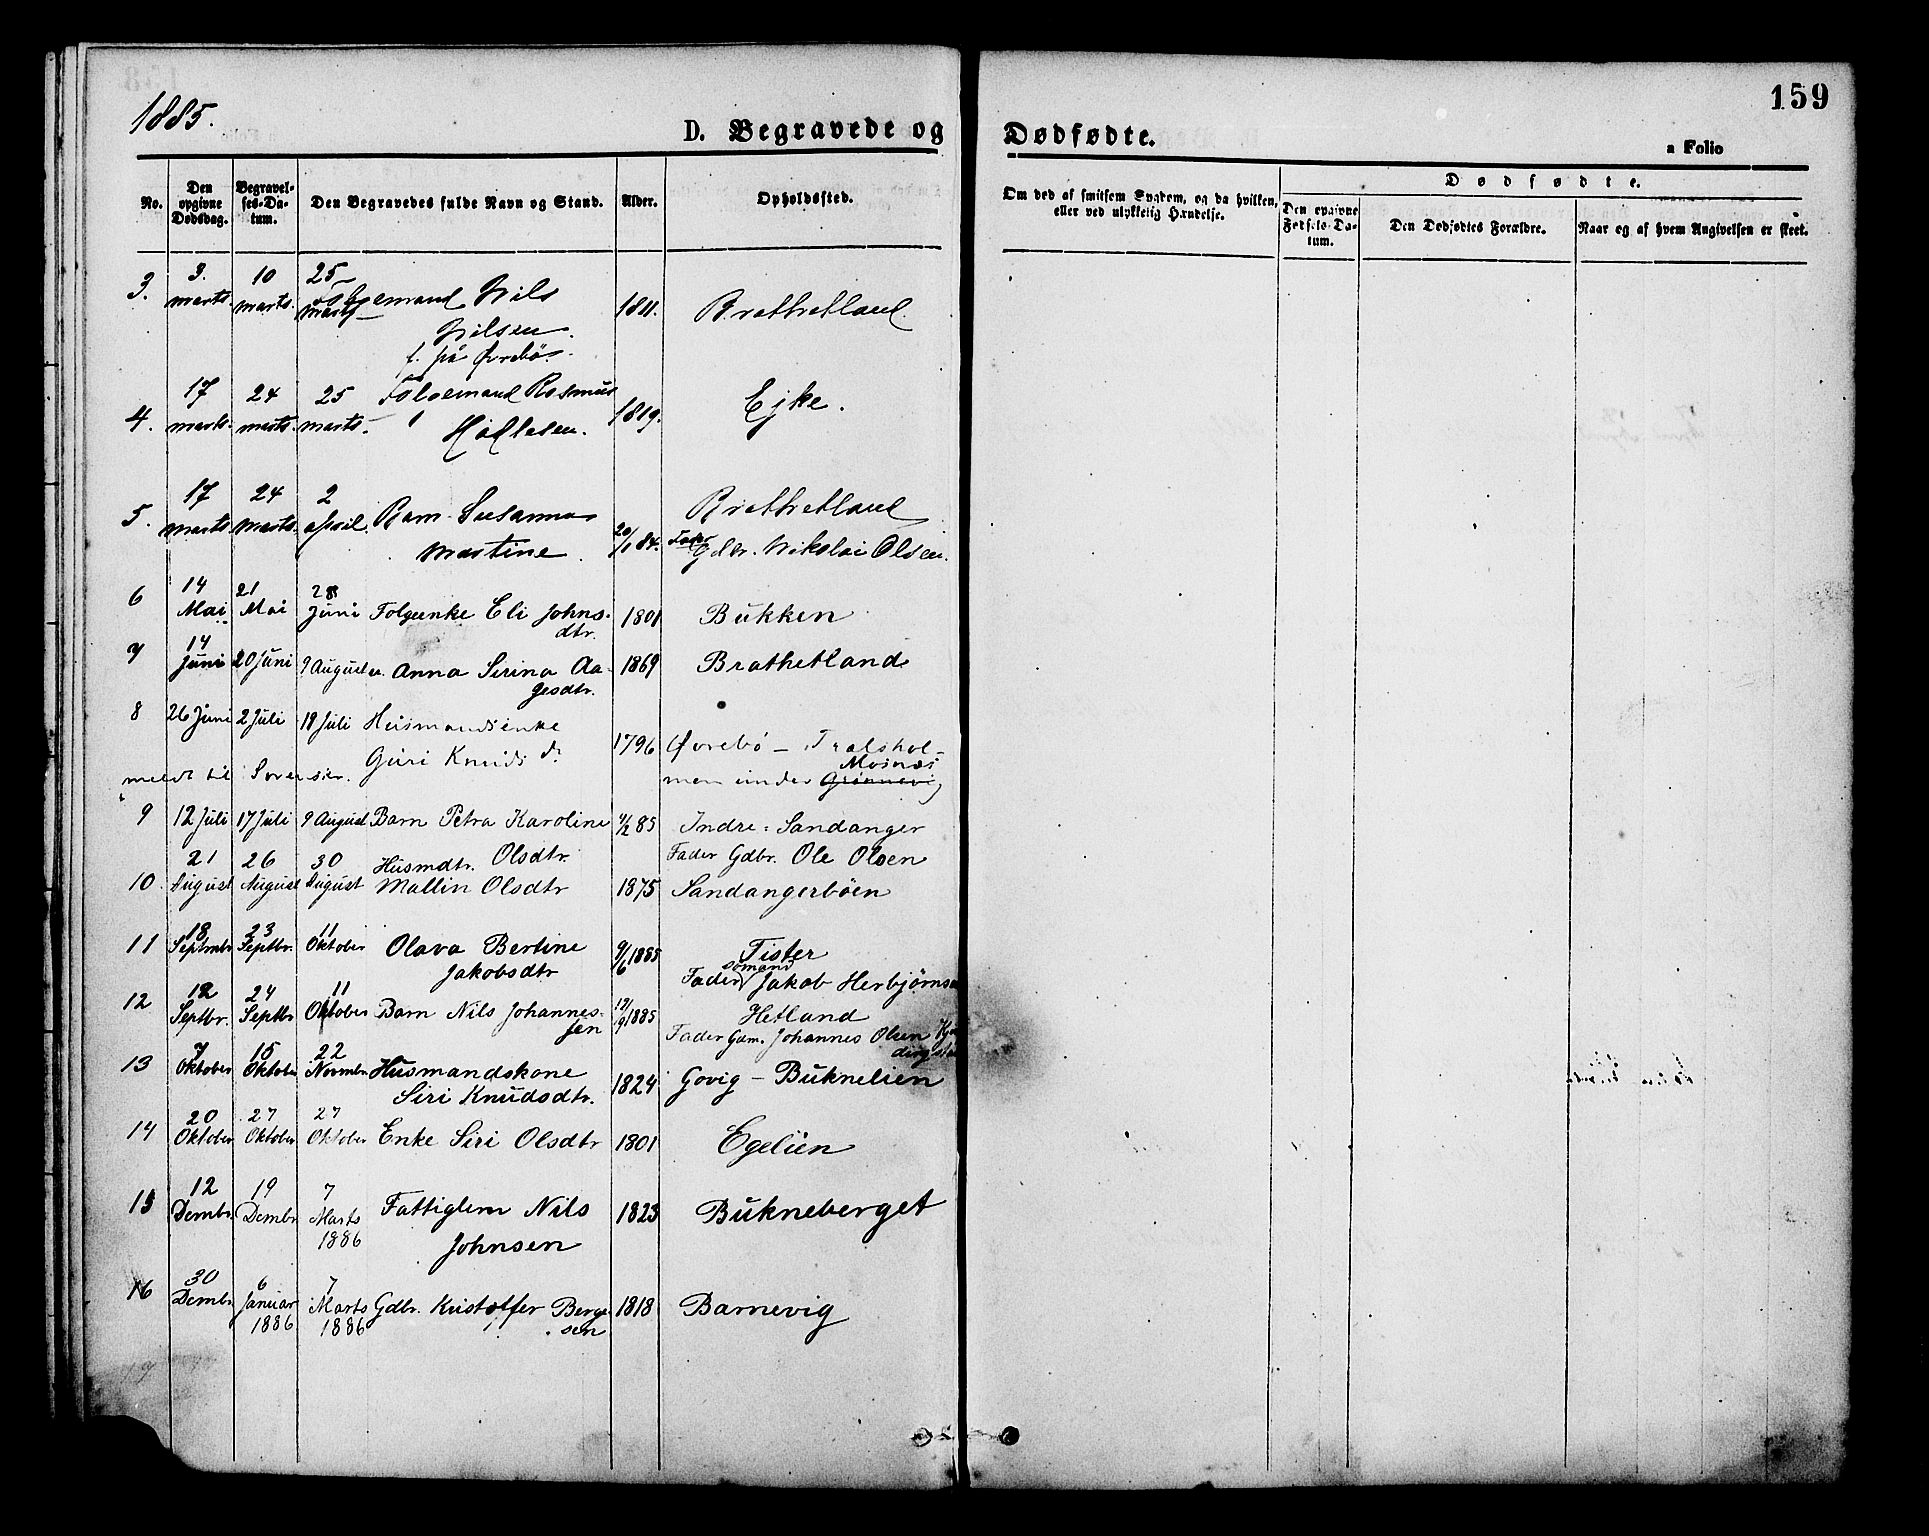 159
1885.
D. Begravede og Dødfødte.
a Folio
No.
Den opgivne Dødsdag.
Begravelses-Datum.
Den Begravedes fulde Navn og Stand.
Alder.
Opholdssted.
Om død af smitsom Sygdom, og da hvilken, eller ved ulykkelig Hændelse.
Dødfødte.
Den opgivne Fødsels-Datum.
Den Dødfødtes Forældre.
Naar og af hvem Angivelsen er skeet.
3. 3. marts. 10 marts. 25 marts Folgemand Nils 1811. Brathetland
Nilsen.
f. på Øvrebö.
4. 17 marts. 24 marts. 25 marts. Folgemand Rasmus 1819. Ejke.
5. 17 marts 24 marts. 2 april. Barn Susanna Brathetland
Martine. 20/1 84. Fader Gdbr. Nikolai Olsen.
6 14 Mai 21 Mai 28 Juni Folgeenke Eli Johns- 1801 Bukken
dtr.
7 14 Juni 20 Juni 9 August Anna Serina Aa- 1869 Brathetland
gesdtr.
8 26 Juni 2 Juli 19 Juli Husmandsenke
Guri Knuds d. 1796 Øvrebö - Tralshol-
Mosnæs
meldt til men under Grönnevig
9 12 Juli 17 Juli 9 August Barn Petra Karoline 85 Indre-Sandanger
Olsdtr. Fader Gdbr. Ole Olsen
10. 21 August 26 August 30 August Husmdtr. Mallin Olsdtr 1875 Sandangerböen
11 18 Septmbr 23 Septbr. 11 Oktober Olava Bertine 9/6 1885 Tister
Jakobsdtr Fader sömand Jakob Herbjörnsen
12 12 Septbr. 24 Septbr 11 Oktober Barn Nils Johannes- 1885 Hetland
sen Fader Gdm. Johannes Olsen
13 7 Oktober 15 Oktober 22 Novmbr Husmandskone 1824 Govig - Buknelien
Siri Knudsdtr.
14 20 Oktober 27 Oktober 27 Oktober Enke Siri Olsdtr 1801 Egelien
15 12 Dembr. 19 Dembr 7 Marts 1886 Fattiglem Nils 1823 Bukneberget
Johnsen
16 30 Dembr. 6 Januar 1886 7 Marts 1886 Gdbr. Kristoffer Berge- 1818 Barnevig
sen